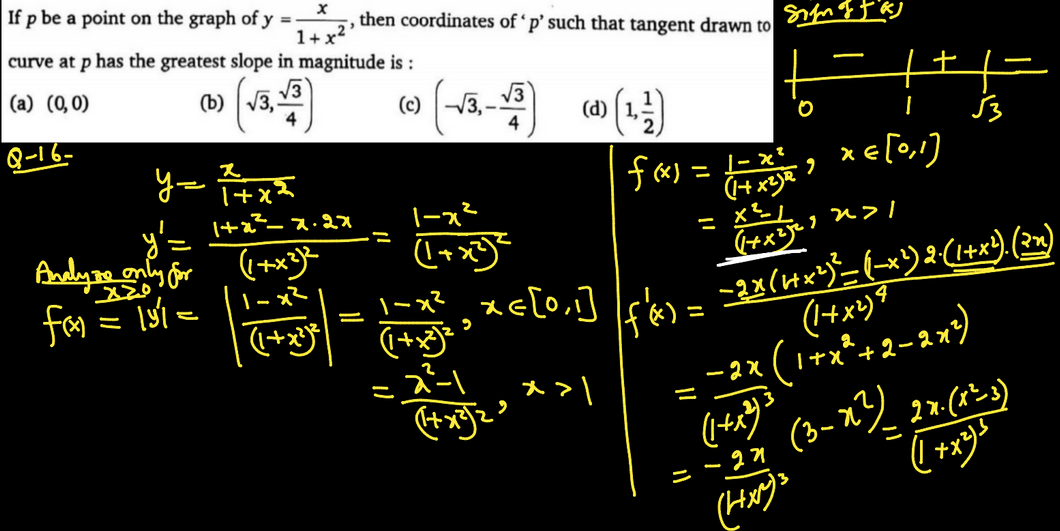 If p be a point on the graph of y = x/(1+x²), then coordinates of 'p' such that tangent drawn to
curve at p has the greatest slope in magnitude is :
(a) (0,0) (b) (√3, √3/4) (c) (-√3, -√3/4) (d) (1, 1/2)
Q-16-
y = x/(1+x²)
y' = (1+x²-x·2x)/(1+x²)² = (1-x²)/(1+x²)²
Analyze only for
x≥0,
f(x) = |y'| = |(1-x²)/(1+x²)²| = (1-x²)/(1+x²)², x∈[0,1]
= (x²-1)/(1+x²)², x>1
f(x) = (1-x²)/(1+x²)², x∈[0,1]
= (x²-1)/(1+x²)², x>1
f'(x) = (-2x(1+x²)²-(1-x²)2·(1+x²)·(2x))/(1+x²)⁴
= -2x/(1+x²)³ (1+x²+2-2x²)
= -2x/(1+x²)³ (3-x²) = 2x·(x²-3)/(1+x²)³
Sign of f'(x)
- + -
0 1 √3